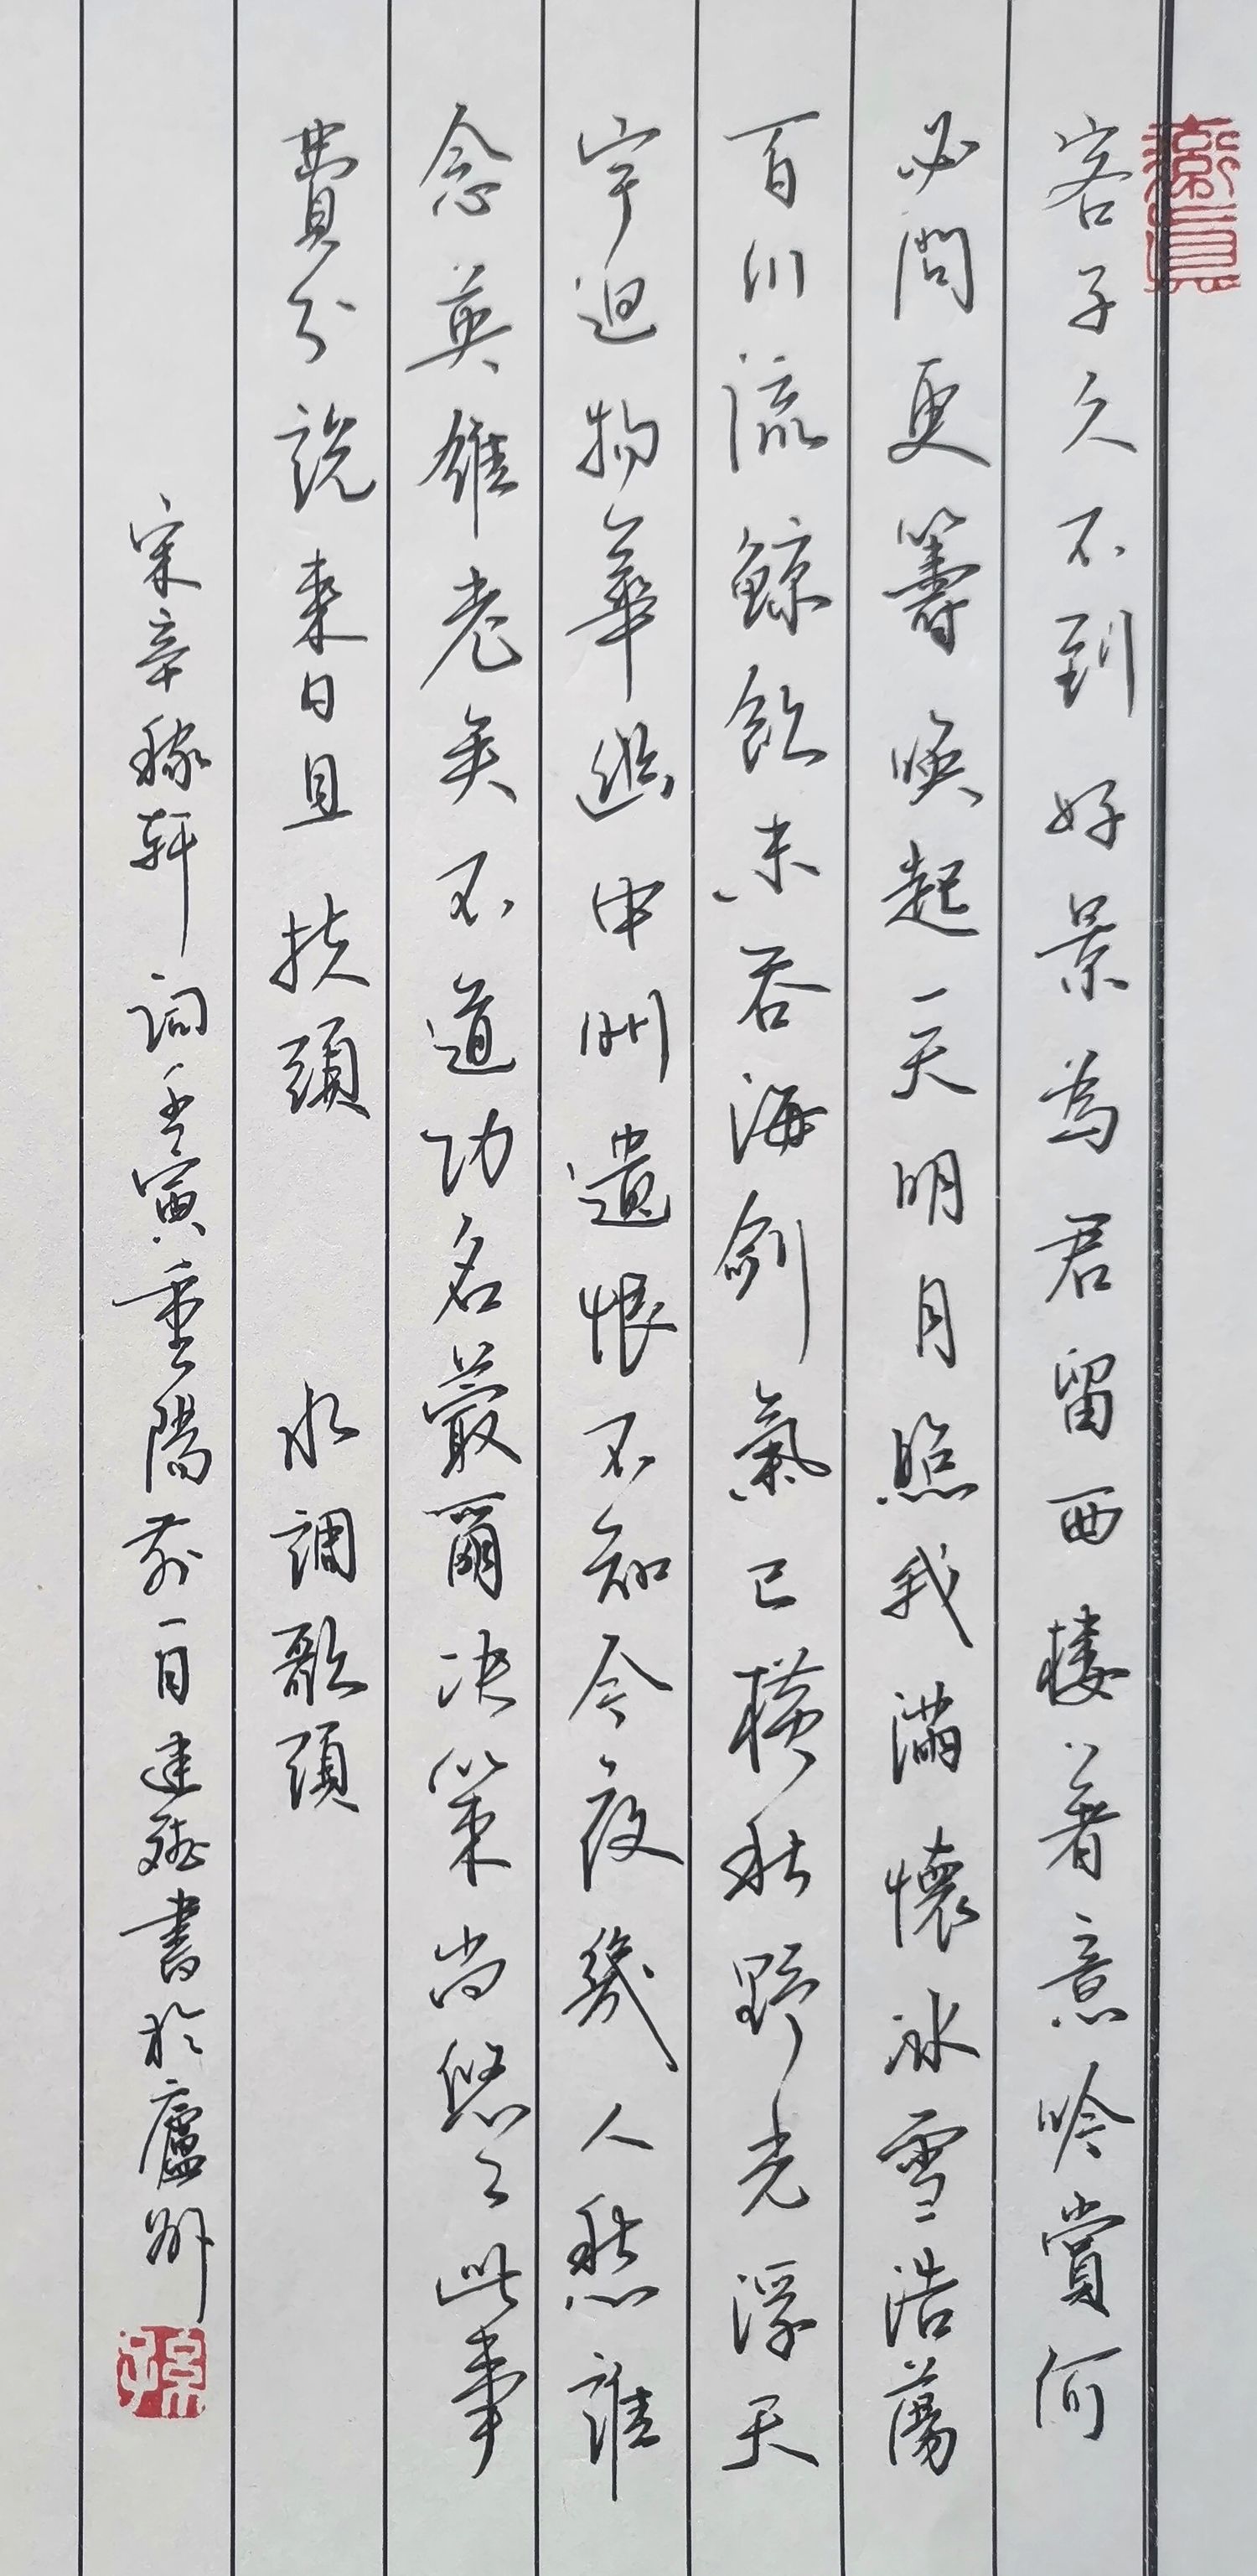 客子久不到好景為君留西楼著意吟賞何
必問更籌喚起一天明月照我滿懷冰雪浩蕩
百川流鯨飲未吞海劍氣已橫秋野光浮天
宇迥物華幽中州遺恨不知今夜幾人愁誰
念英雄老矣不道功名蕞爾決策尚悠々此事
費分說來日且扶頭 水調歌頭
宋辛稼軒詞壬寅重陽前一日建書於廬